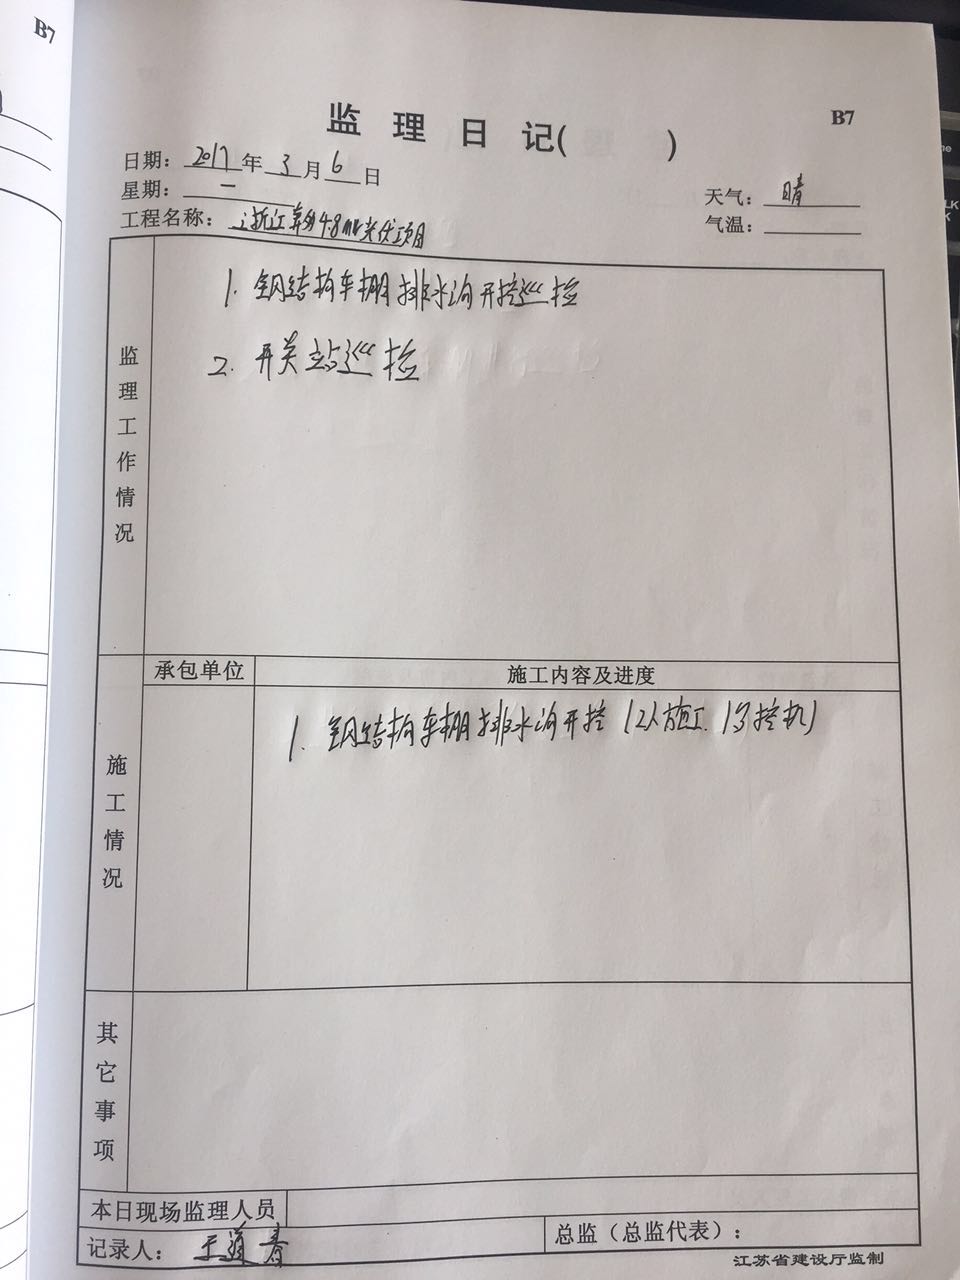 B7
监理日记( )
B7
日期：2017年3月6日
星期：一
天气：晴
工程名称：浙江 4.8MW光伏项目
气温：
监理工作情况
1. 钢结构车棚排水沟开挖巡检
2. 开关站巡检
承包单位
施工内容及进度
施工情况
1. 钢结构车棚排水沟开挖（2人施工、1台挖机）
其它事项
本日现场监理人员
记录人：王 春
总监（总监代表）：
江苏省建设厅监制